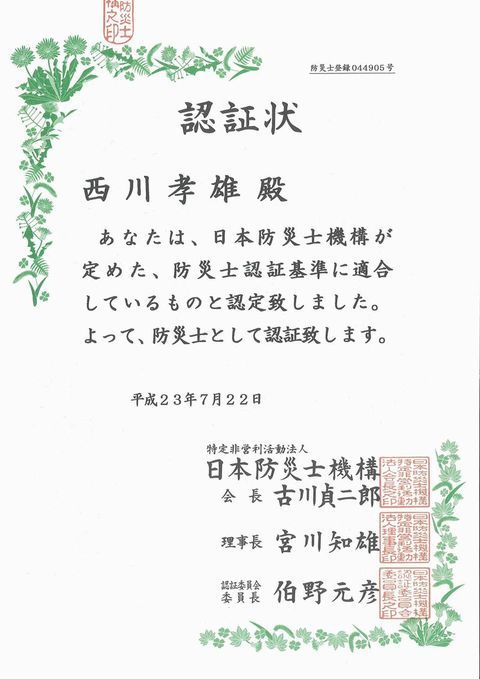 防災士登録044905号
認証状
西川孝雄殿
あなたは、日本防災士機構が
定めた、防災士認証基準に適合
しているものと認定致しました。
よって、防災士として認証致します。
平成23年7月22日
特定非営利活動法人
日本防災士機構
会長 古川貞二郎
理事長 宮川知雄
認証委員会
委員長 伯野元彦